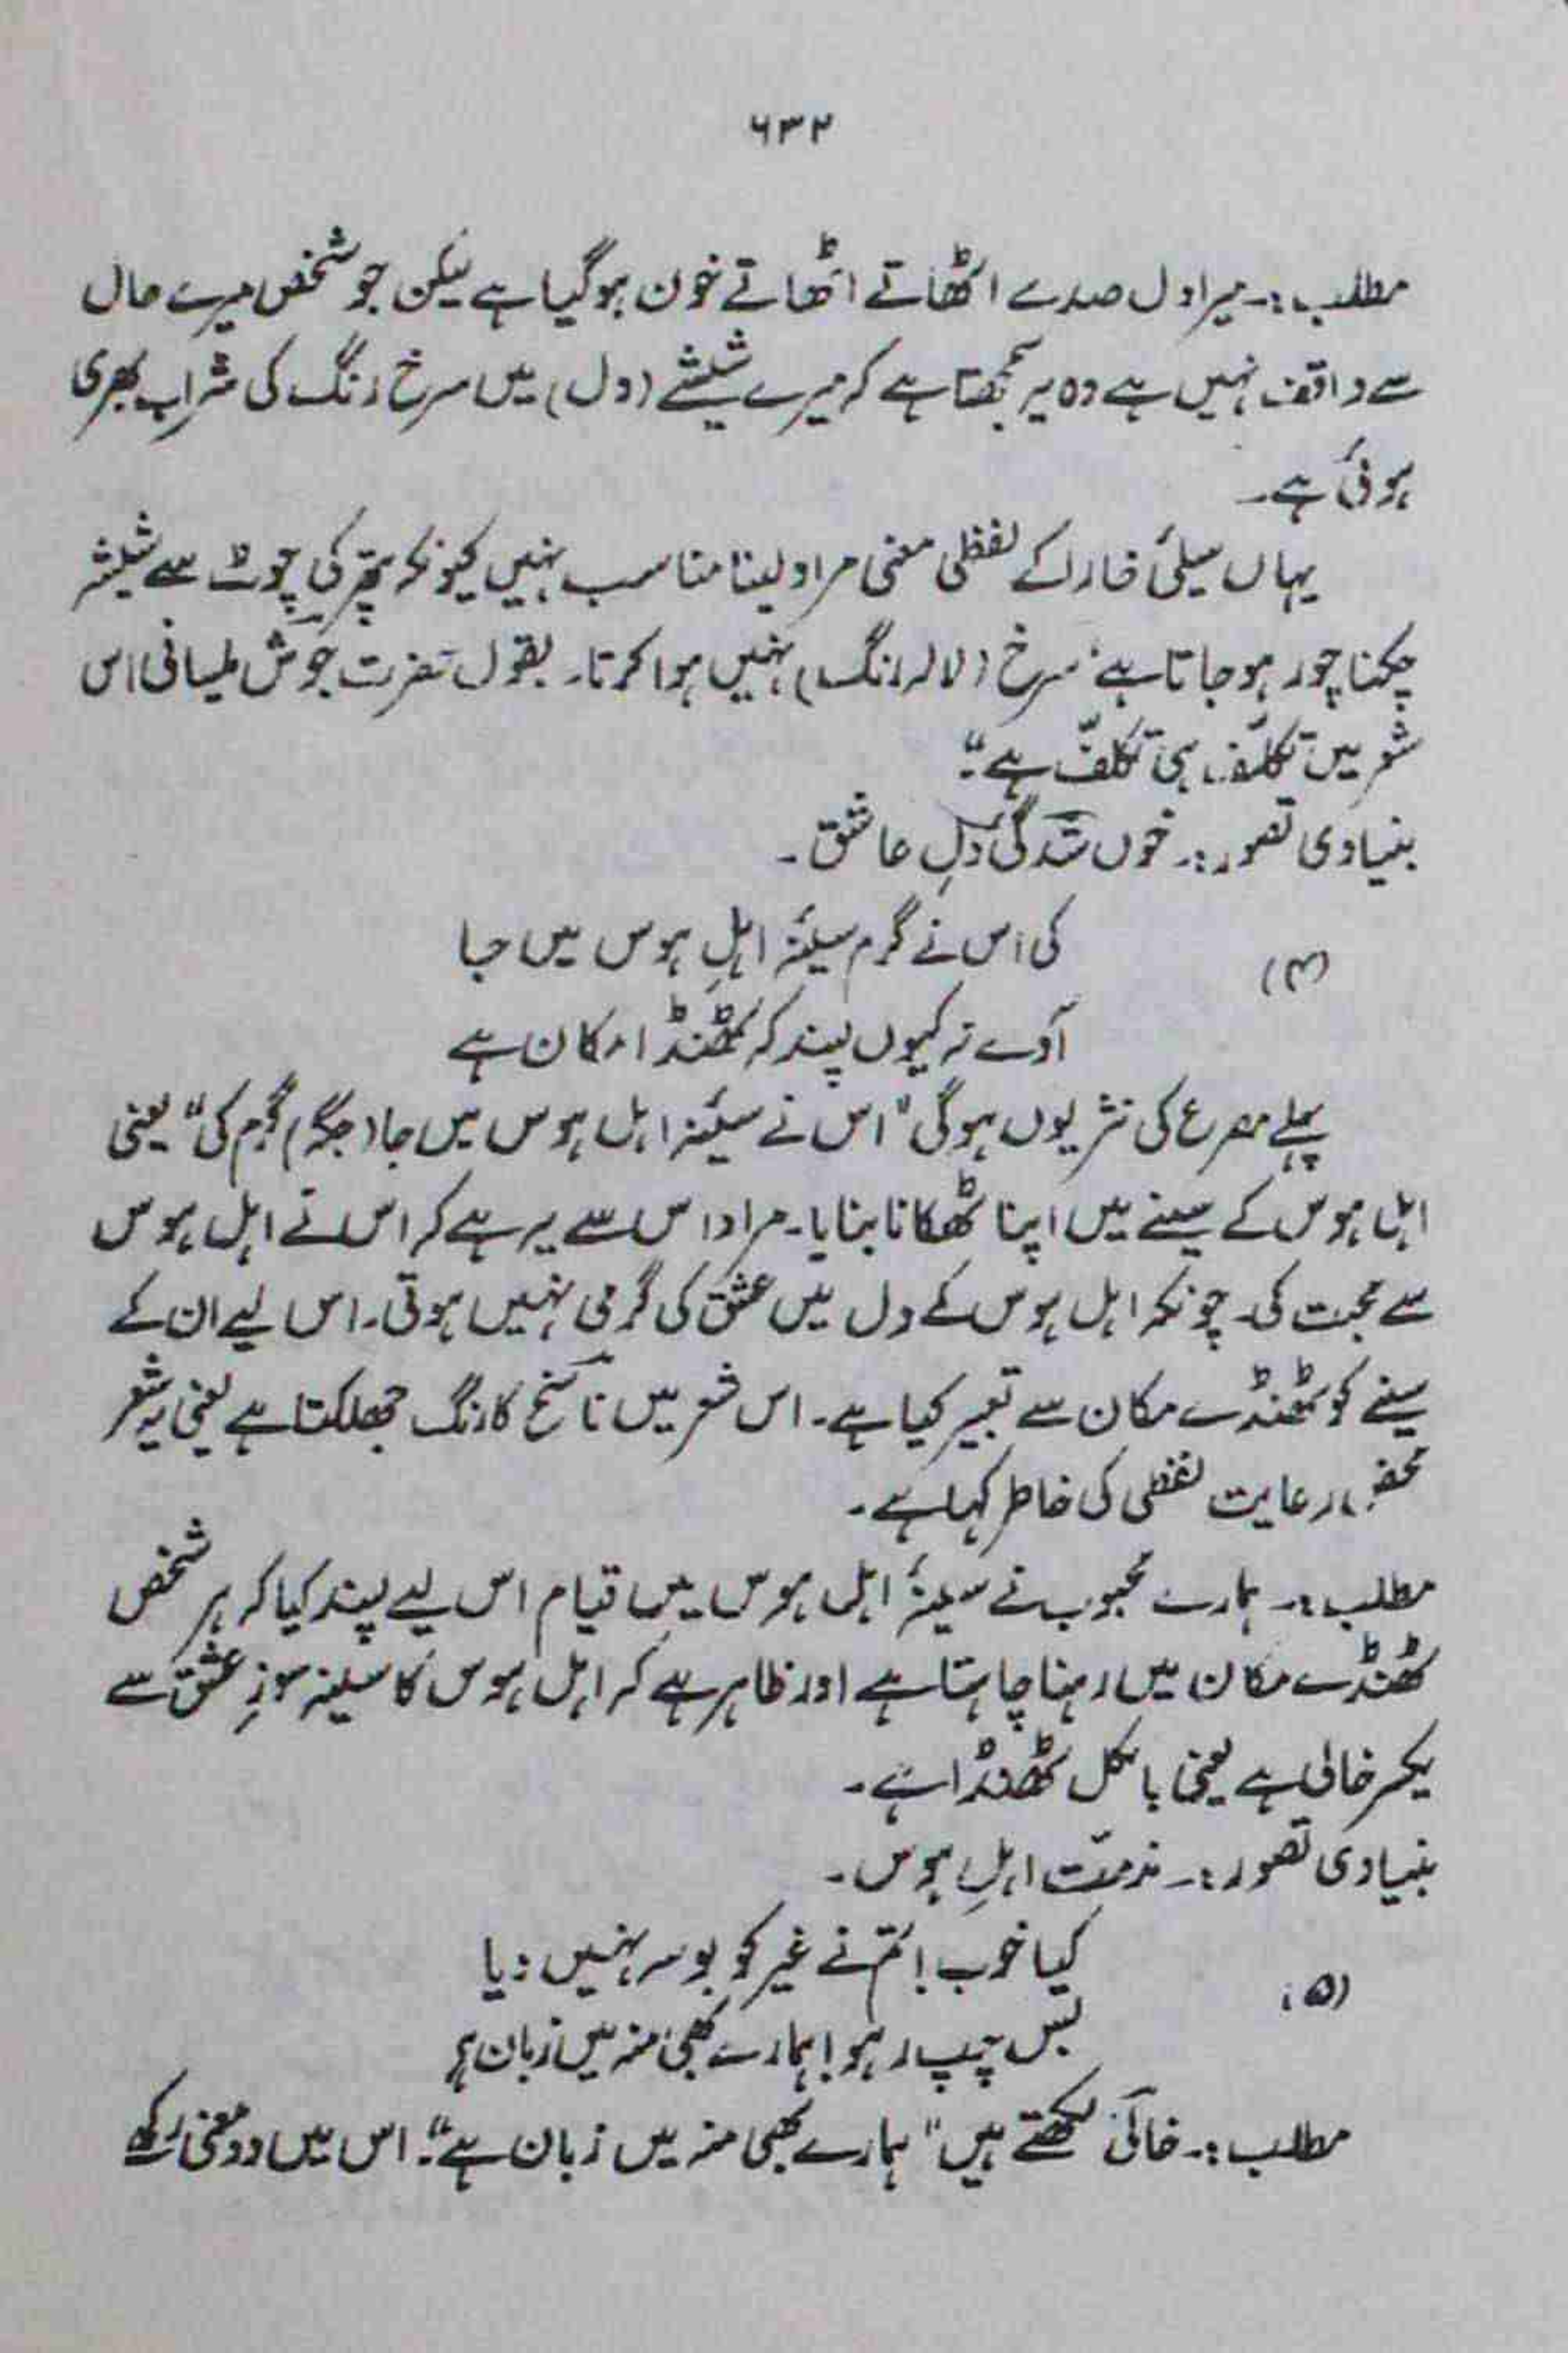 ۶۳۲
مطلب:۔ میرا دل صدمے اٹھاتے اٹھاتے خون ہوگیا ہے لیکن جو شخص میرے حال
سے واقف نہیں ہے وہ یہ سمجھتا ہے کہ میرے شیشے (دل) میں سرخ رنگ کی شراب بھری
ہوئی ہے۔
یہاں سیلئ خار کے لفظی معنی مراد لینا مناسب نہیں کیونکہ پتھر کی چوٹ سے شیشہ
چکنا چور ہو جاتا ہے، سرخ (لالہ رنگ) نہیں ہوا کرتا۔ بقول حضرت جوش ملسیانی اس
شعر میں تکلّف ہی تکلّف ہے"۔
بنیادی تصور:۔ خوں شدگیٔ دلِ عاشق۔
(۴) کی اس نے گرم سینۂ اہلِ ہوس میں جا
آوے نہ کیوں پسند کہ ٹھنڈا مکان ہے
پہلے مصرع کی نثر یوں ہوگی "اس نے سینۂ اہل ہوس میں جا (جگہ) گرم کی" یعنی
اہل ہوس کے سینے میں اپنا ٹھکانا بنایا۔ مراد اس سے یہ ہے کہ اس نے اہل ہوس
سے محبت کی۔ چونکہ اہل ہوس کے دل میں عشق کی گرمی نہیں ہوتی۔ اس لیے ان کے
سینے کو ٹھنڈے مکان سے تعبیر کیا ہے۔ اس شعر میں ناسخؔ کا رنگ جھلکتا ہے یعنی یہ شعر
محض رعایت لفظی کی خاطر کہا ہے۔
مطلب:۔ ہمارے محبوب نے سینۂ اہل ہوس میں قیام اس لیے پسند کیا کہ ہر شخص
ٹھنڈے مکان میں رہنا چاہتا ہے اور ظاہر ہے کہ اہل ہوس کا سینہ سوزِ عشق سے
یکسر خالی ہے یعنی بالکل ٹھنڈا ہے۔
بنیادی تصور:۔ مذمّت اہلِ ہوس۔
(۵) کیا خوب! تم نے غیر کو بوسہ نہیں دیا
بس چپ رہو! ہمارے بھی منہ میں زبان ہے
مطلب:۔ حالیؔ لکھتے ہیں "ہمارے بھی منہ میں زبان ہے"۔ اس میں دو معنی رکھے